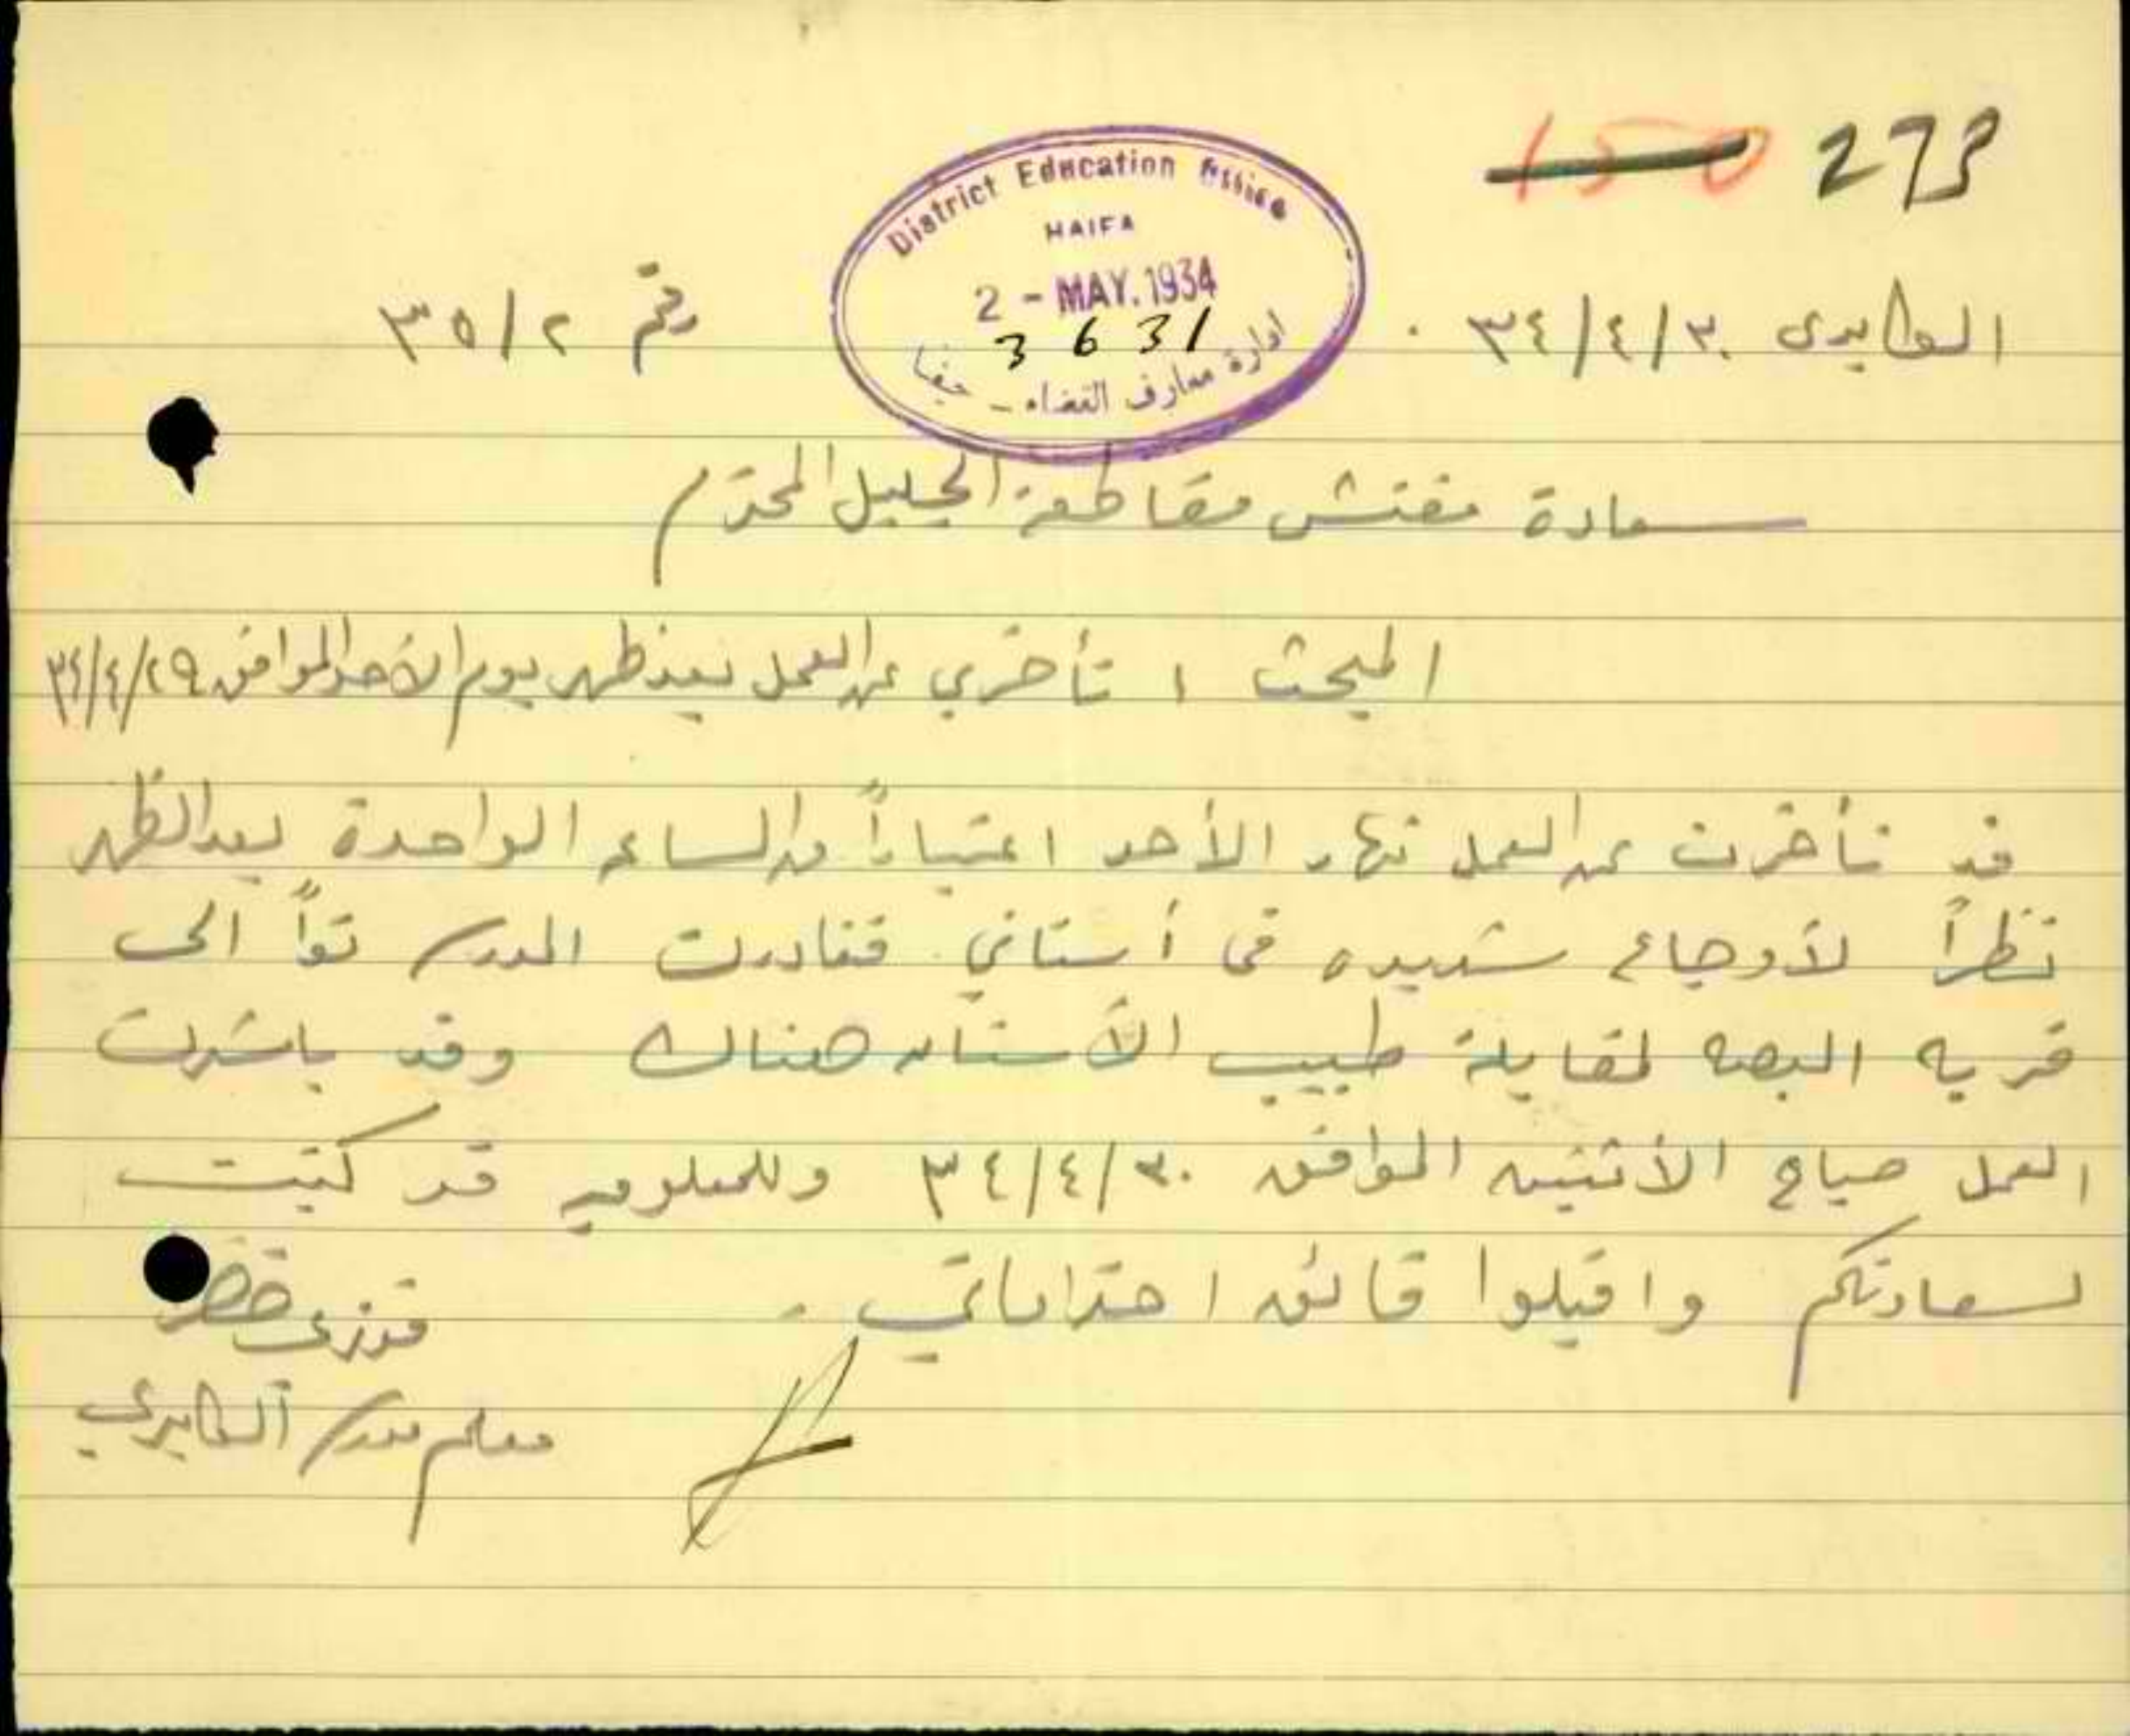 273
150
District Education Office
HAIFA
2 - MAY. 1934
3631
ادارة معارف القضاء - حيفا
الكابري ٣٤/٤/٣٠ .
رقم ٣٥/٢
سعادة مفتش مقاطعة الجليل المحترم
المبحث : تأخري عن العمل بعد ظهر يوم الأحد الموافق ٣٤/٤/٢٩
قد تأخرت عن العمل نهار الأحد اعتباراً من الساعه الواحدة بعد الظهر
نظراً لأوجاع شديده في أسناني . فغادرت المدرسة تواً الى
قريه البصه لمقابلة طبيب الأسنان هناك وقد باشرت
العمل صباح الأثنين الموافق ٣٤/٤/٣٠ وللمعلوميه قد كتبت
لسعادتكم واقبلوا فائق احتراماتي .
فوزي خضر
معلم مدرسة الكابري